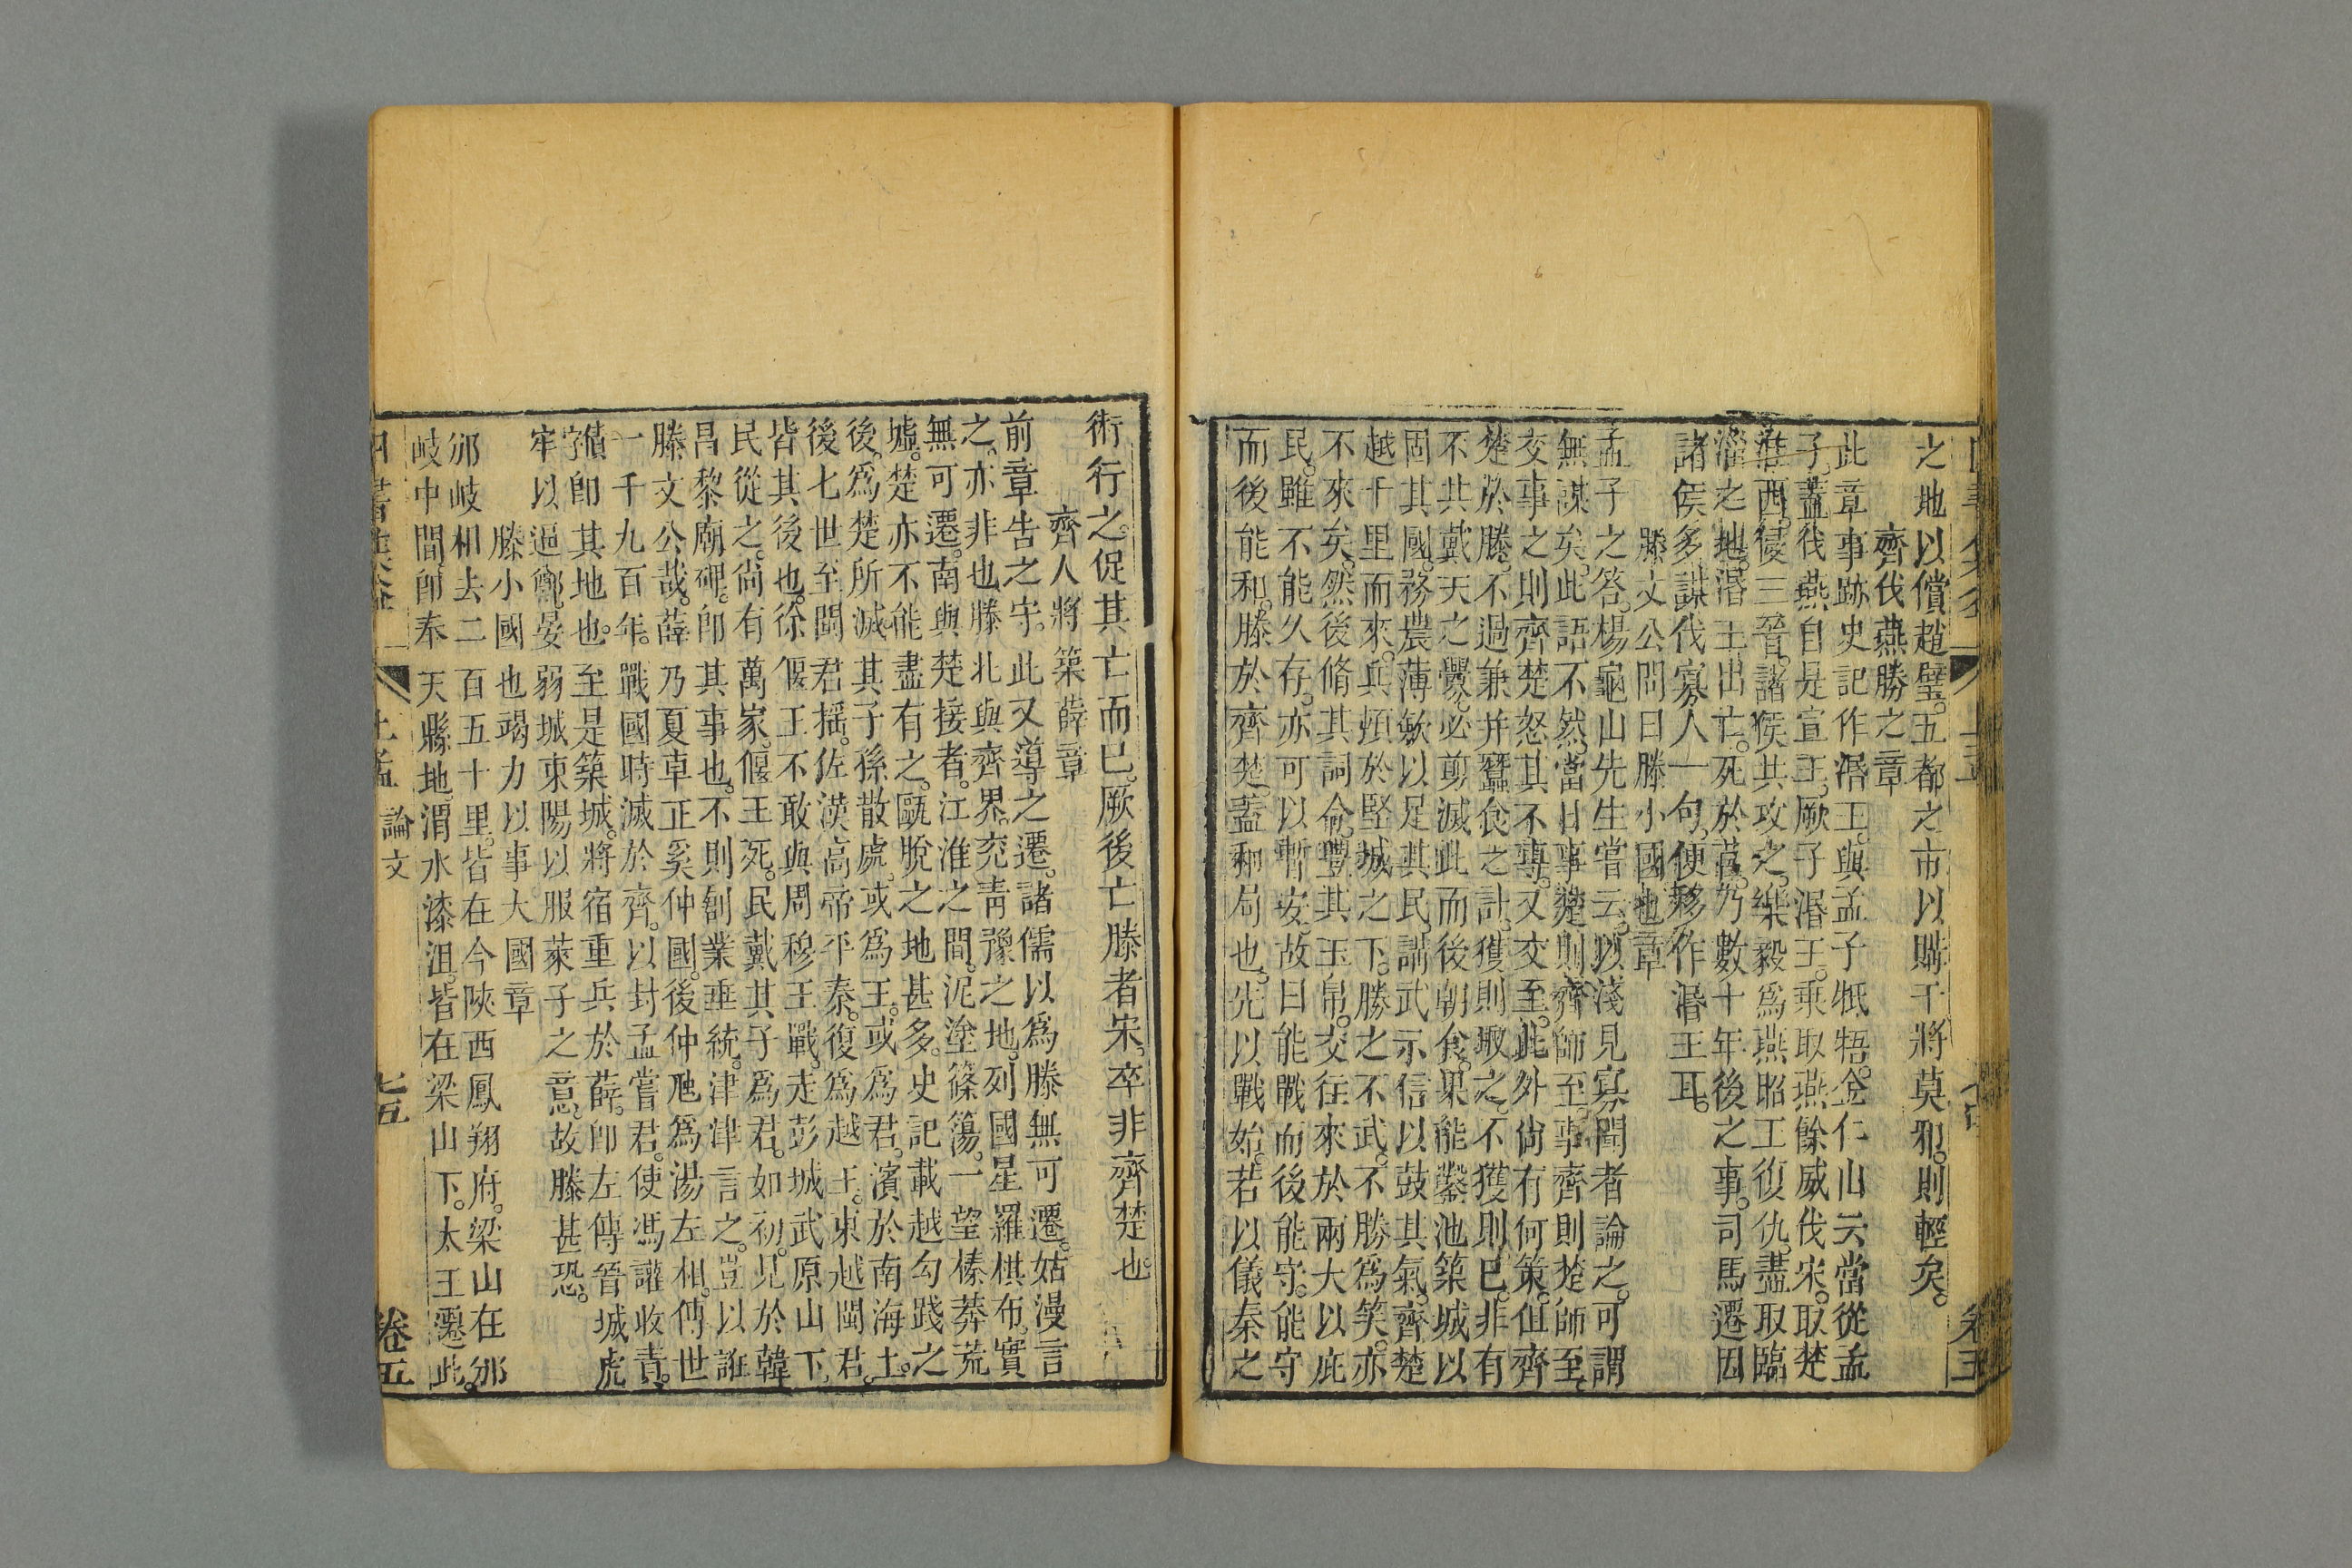 之地以償趙璧。五都之市以購干將莫邪。則輕矣。
齊伐燕勝之章
此章事跡史記作湣王。與孟子牴牾。金仁山云當從孟
子。蓋伐燕自是宣王。厥子湣王。乘取燕餘威伐宋。取楚
淮西。侵三晉。諸侯共攻之。樂毅為燕昭王復仇。盡取臨
淄之地。湣王出亡。死於莒。乃數十年後之事。司馬遷因
諸侯多謀伐寡人一句。便移作湣王耳。
滕文公問曰滕小國也章
孟子之答。楊龜山先生嘗云。以淺見寡聞者論之。可謂
無謀矣。此語不然。當日事楚則齊師至。事齊則楚師至。
交事之則齊楚怒其不專。又交至。此外尚有何策。但齊
楚於滕。不過兼并蠶食之計。獲則掇之。不獲則已。非有
不共戴天之釁。必剪滅此而後朝食。果能鑿池築城以
固其國。務農薄斂以足其民。講武示信以鼓其氣。齊楚
越千里而來。兵頓於堅城之下。勝之不武。不勝為笑。亦
不來矣。然後脩其詞命。豐其玉帛。交往來於兩大以庇
民。雖不能久存。亦可以暫安。故曰能戰而後能守。能守
而後能和。滕於齊楚。蓋和局也。先以戰始。若以儀秦之
術行之。促其亡而已。厥後亡滕者宋。卒非齊楚也。
齊人將築薛章
前章告之守。此又導之遷。諸儒以為滕無可遷。姑漫言
之。亦非也。滕北與齊界。兖青豫之地。列國星羅棋布。實
無可遷。南與楚接者。江淮之間。泥塗篠簜。一望榛莽荒
墟。楚亦不能盡有之。甌脫之地甚多。史記載越勾踐之
後。為楚所滅。其子孫散處。或為王。或為君。濱於南海上。
後七世至閩君搖。佐漢高帝平秦。復為越王。東越閩君。
皆其後也。徐偃王不敢與周穆王戰。走彭城武原山下。
民從之。尚有萬家。偃王死。民戴其子為君。如初。見於韓
昌黎廟碑。即其事也。不則創業垂統。津津言之。豈以誑
滕文公哉。薛乃夏車正奚仲國。後仲虺為湯左相。傳世
一千九百年。戰國時滅於齊。以封孟嘗君。使馮讙收責。
債字即其地也。至是築城。將宿重兵於薛。即左傳晉城虎
牢以逼鄭。晏弱城東陽以服萊子之意。故滕甚恐。
滕小國也竭力以事大國章
邠岐相去二百五十里。皆在今陝西鳳翔府。梁山在邠
岐中間。即奉天縣地。渭水漆沮。皆在梁山下。太王遷此。
上孟 論文 七五 卷五